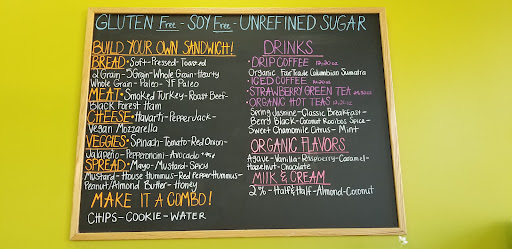 GLUTEN Free - SOY Free - UNREFINED SUGAR
BUILD YOUR OWN SANDWICH!
BREAD• Soft-Pressed-Toasted
2 Grain-5 Grain-Whole Grain-Hearty
Whole Grain-Paleo-YF Paleo
MEAT• Smoked Turkey-Roast Beef-
Black Forest Ham
CHEESE• Havarti-PepperJack-
Vegan Mozzarella
VEGGIES• Spinach-Tomato-Red Onion-
Jalapeño-Pepperoncini-Avocado
SPREAD• Mayo-Mustard-Spicy
Mustard-House Hummus-Red Pepper Hummus-
Peanut/Almond Butter-Honey
MAKE IT A COMBO!
CHIPS-COOKIE-WATER
DRINKS
• DRIP COFFEE 12, 20 oz
Organic Fair Trade Columbian Sumatra
• ICED COFFEE
• STRAWBERRY GREEN TEA
• ORGANIC HOT TEAS
Spring Jasmine-Classic Breakfast-
Berry Black-Coconut Rooibos Spice-
Sweet Chamomile Citrus-Mint
ORGANIC FLAVORS
Agave-Vanilla-Raspberry-Caramel-
Hazelnut-Chocolate
MILK & CREAM
2%-Half&Half-Almond-Coconut